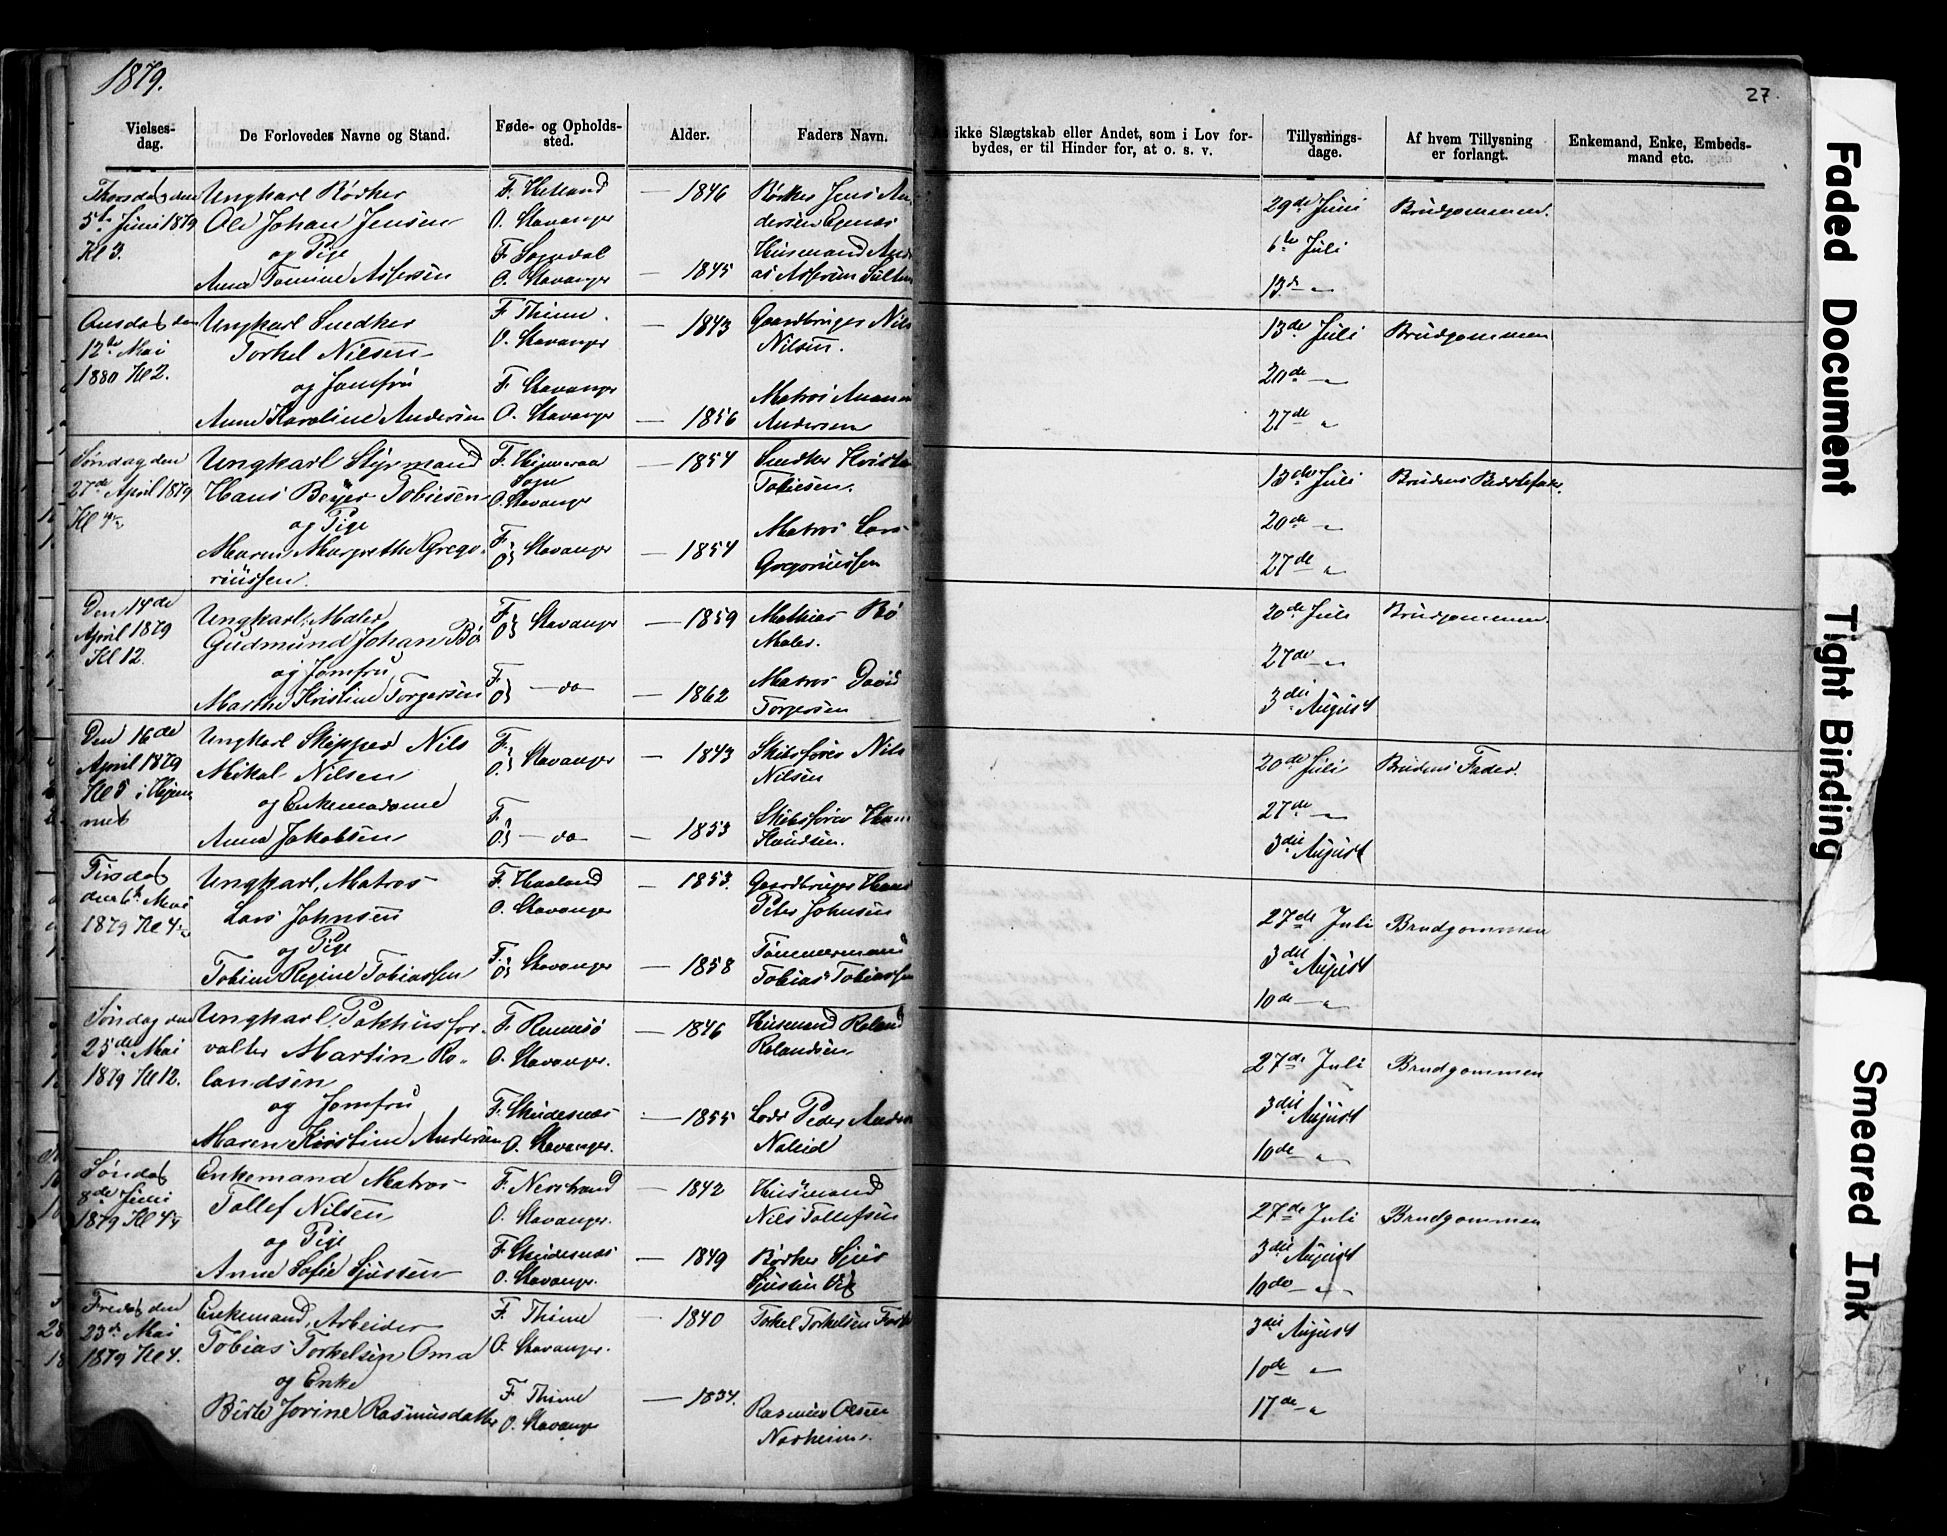 1879.
27.
Vielses-
dag.
De Forlovedes Navne og Stand.
Føde- og Opholds-
sted.
Alder.
Faders Navn.
ikke Slægtskab eller Andet, som i Lov for-
bydes, er til Hinder for, at o. s. v.
Tillysnings-
dage.
Af hvem Tillysning
er forlangt.
Enkemand, Enke, Embeds-
mand etc.
Thorsdag den Ungkarl Bødker F. Helland — 1846 Bødker Jens An-
5te Juni 1879 Ole Johan Jensen O. Stavanger dersen Egenæs
Kl 3. og Pige F. Sogndal Husmand And-
Anna Tomine Assersen O. Stavanger — 1845 as Assersen
29de Juni Brudgommen.
6te Juli
13de "
Onsdag den Ungkarl Snedker F. Thime. — 1843 Gaardbruger Nils
12te Mai Torkel Nilsen O. Stavanger Nilsen.
1880 Kl 2. og Jomfru F. Stavanger Matros
Anne Karoline Andersen O. Stavanger — 1856 Andersen
13de Juli Brudgommen
20de "
27de "
Søndag den Ungkarl Styrmand F. — 1854 Snedker
27de April 1879 Hans Beyer Tobiesen Sogn Tobiesen.
Kl 4½ og Pige O. Stavanger Matros Lars
Maren Margrethe Grego- F. O. Stavanger — 1854 Gregoriussen
riussen.
13de Juli Brudens
20de "
27de "
Den 14de Ungkarl, Maler F. O. Stavanger — 1859 Mathias Bø
April 1879 Gudmund Johan Bø Maler.
Kl 12. og Jomfru Matros David
Marthe Kristine Torgersen F. O. — do — 1862 Torgersen
20de Juli Brudgommen
27de "
3die August
Den 16de Ungkarl Skipper Nils F. O. Stavanger — 1843 Skibsfører Nils
April 1879 Mikal Nilsen Nilsen
Kl 5 i Hjem- og Enkemadame Skibsfører
met Anna Jakobsen F. O. — do — 1853 Knudsen.
20de Juli Brudens Fader.
27de "
3die August
Tirsdag Ungkarl, Matros F. Haaland — 1853. Gaardbruger Hans
den 6te Mai Lars Johnsen O. Stavanger Peter Johnsen
1879 Kl 4½ og Pige Tømmermand
Tobine Regine Tobiassen F. O. Stavanger — 1858 Tobias Tobiassen
27de Juli Brudgommen
3die August
10de "
Søndag den Ungkarl, Pakhusfor- F. Rennesø — 1846 Husmand Roland
25de Mai valter Martin Ro- O. Stavanger. Rolandsen
1879 Kl 12. landsen
og Jomfru F. Skudesnæs — 1855 Lods Peder
Maren Kirstine Andersen O. Stavanger.
27de Juli Brudgommen
3die August
10de "
Søndag Enkemand Matros F. Nerstrand — 1842 Husmand
8de Juni Tollef Nilsen O. Stavanger. Nils Tollefsen
1879 Kl 4½ og Pige F. Skudesnæs — 1849 Bødker Sjur
Anne Sofie Sjursen O. Stavanger. Sjursen
27de Juli Brudgommen
3die August
10de "
Fredag den Enkemand, Arbeider F. Thime — 1840 Torkel Torkelsen
23de Mai Tobias Torkelsen Oma O. Stavanger.
1879 Kl 4. og Enke F. Thime — 1834. Rasmus Olsen
Birte Jorine Rasmusdatter O. Stavanger Norheim.
3die August
10de "
17de "
Faded Document
Tight Binding
Smeared Ink